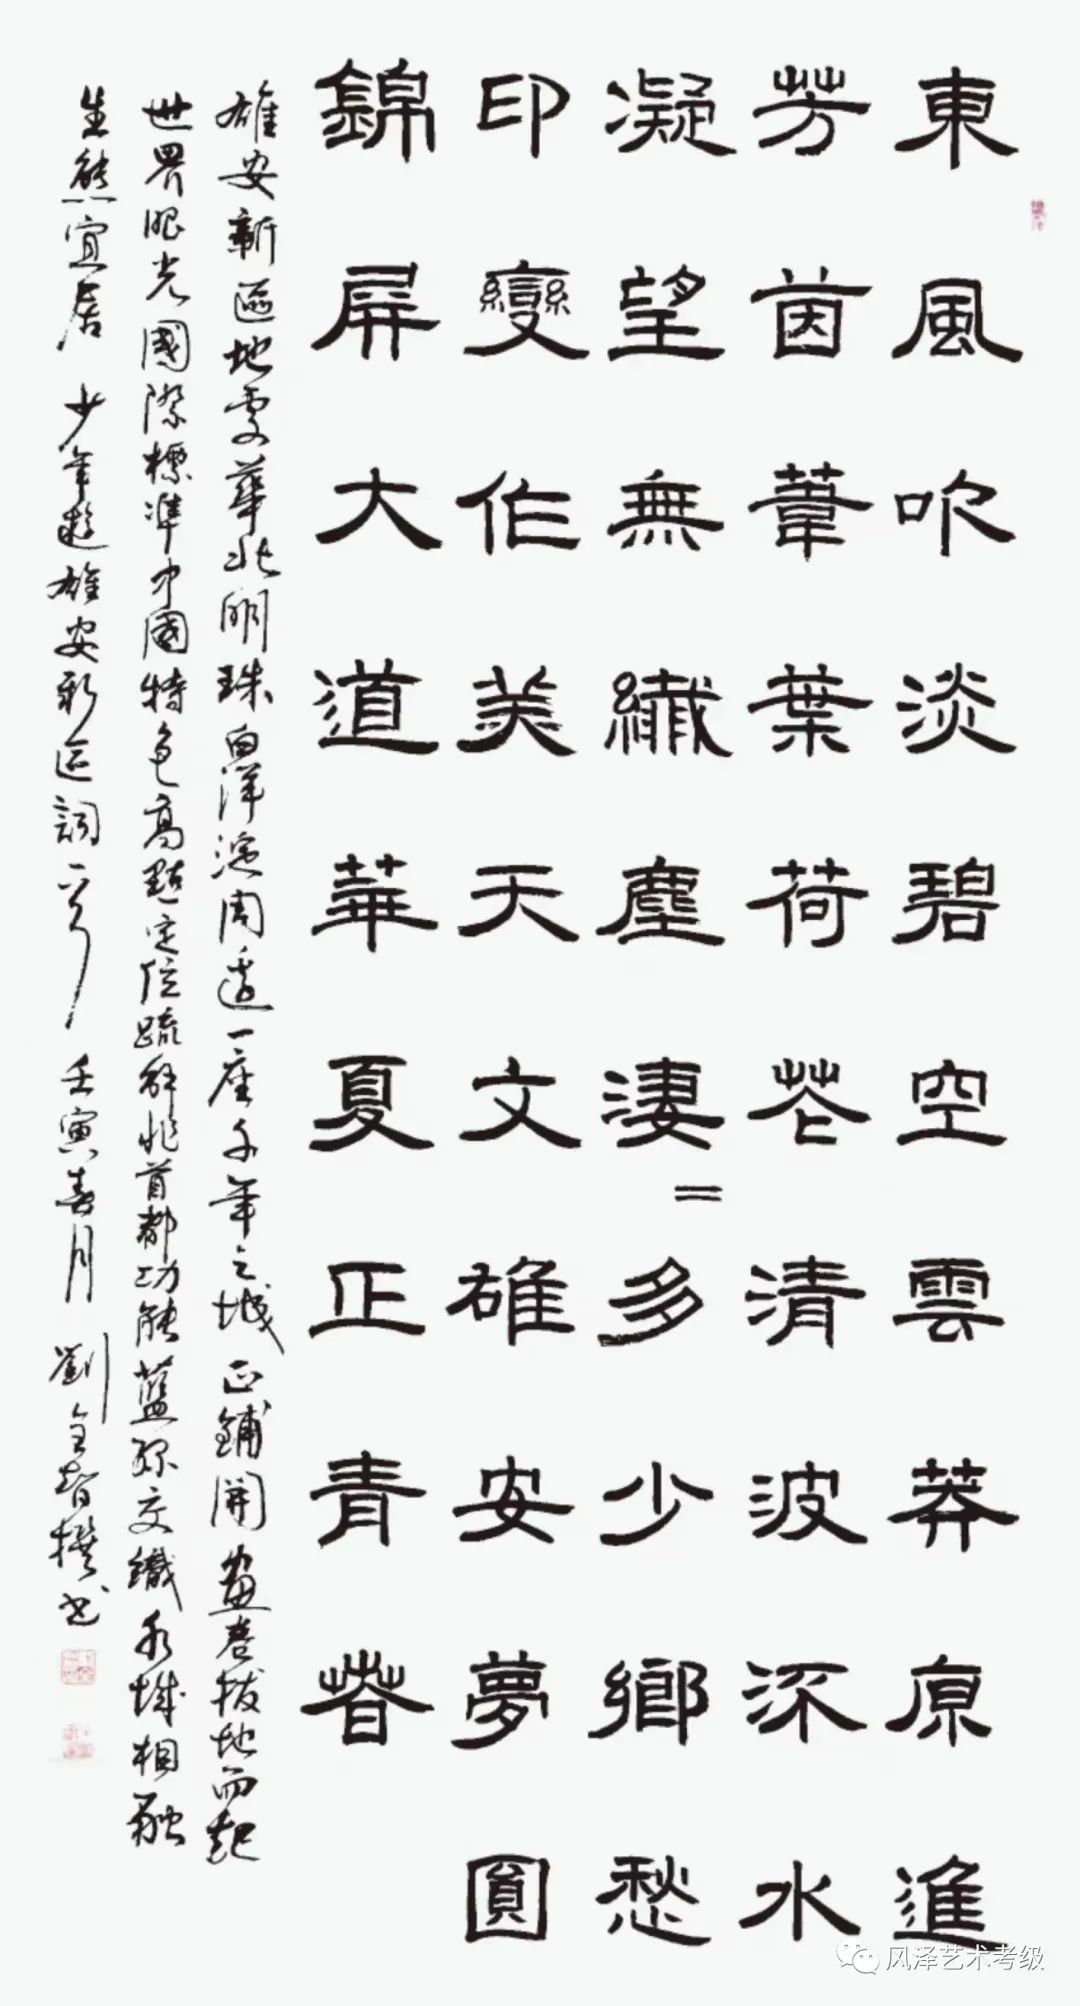 東風吹淡碧空雲莽原進
芳茵葦葉荷花清波深水
凝望無纖塵淒＝多少鄉愁
印變作美天文雄安夢圓
錦屏大道華夏正青春
雄安新區地處華北明珠白洋淀周邊一座千年之城正鋪開畫卷拔地而起
世界眼光國際標準中國特色高點定位疏解非首都功能藍綠交織水城相融
生態宜居 少年遊雄安新区詞一首 壬寅春月 劉智撰书
风泽艺术考级